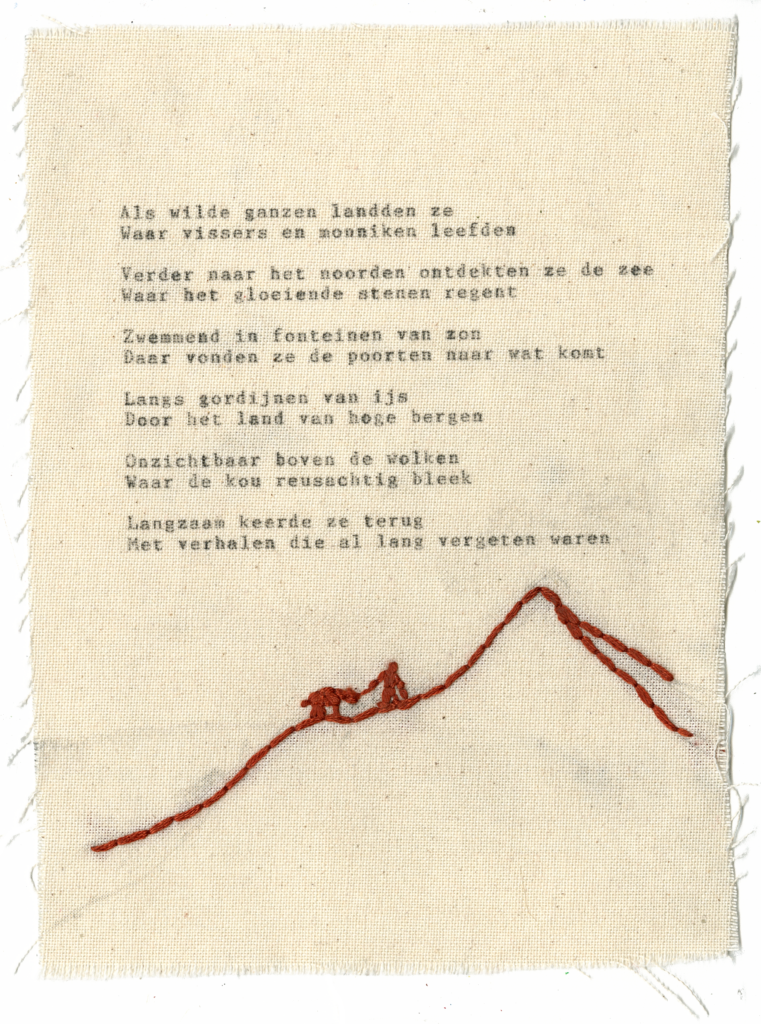 Als wilde ganzen landden ze
Waar vissers en monniken leefden
Verder naar het noorden ontdekten ze de zee
Waar het gloeiende stenen regent
Zwemmend in fonteinen van zon
Daar vonden ze de poorten naar wat komt
Langs gordijnen van ijs
Door het land van hoge bergen
Onzichtbaar boven de wolken
Waar de kou reusachtig bleek
Langzaam keerde ze terug
Met verhalen die al lang vergeten waren